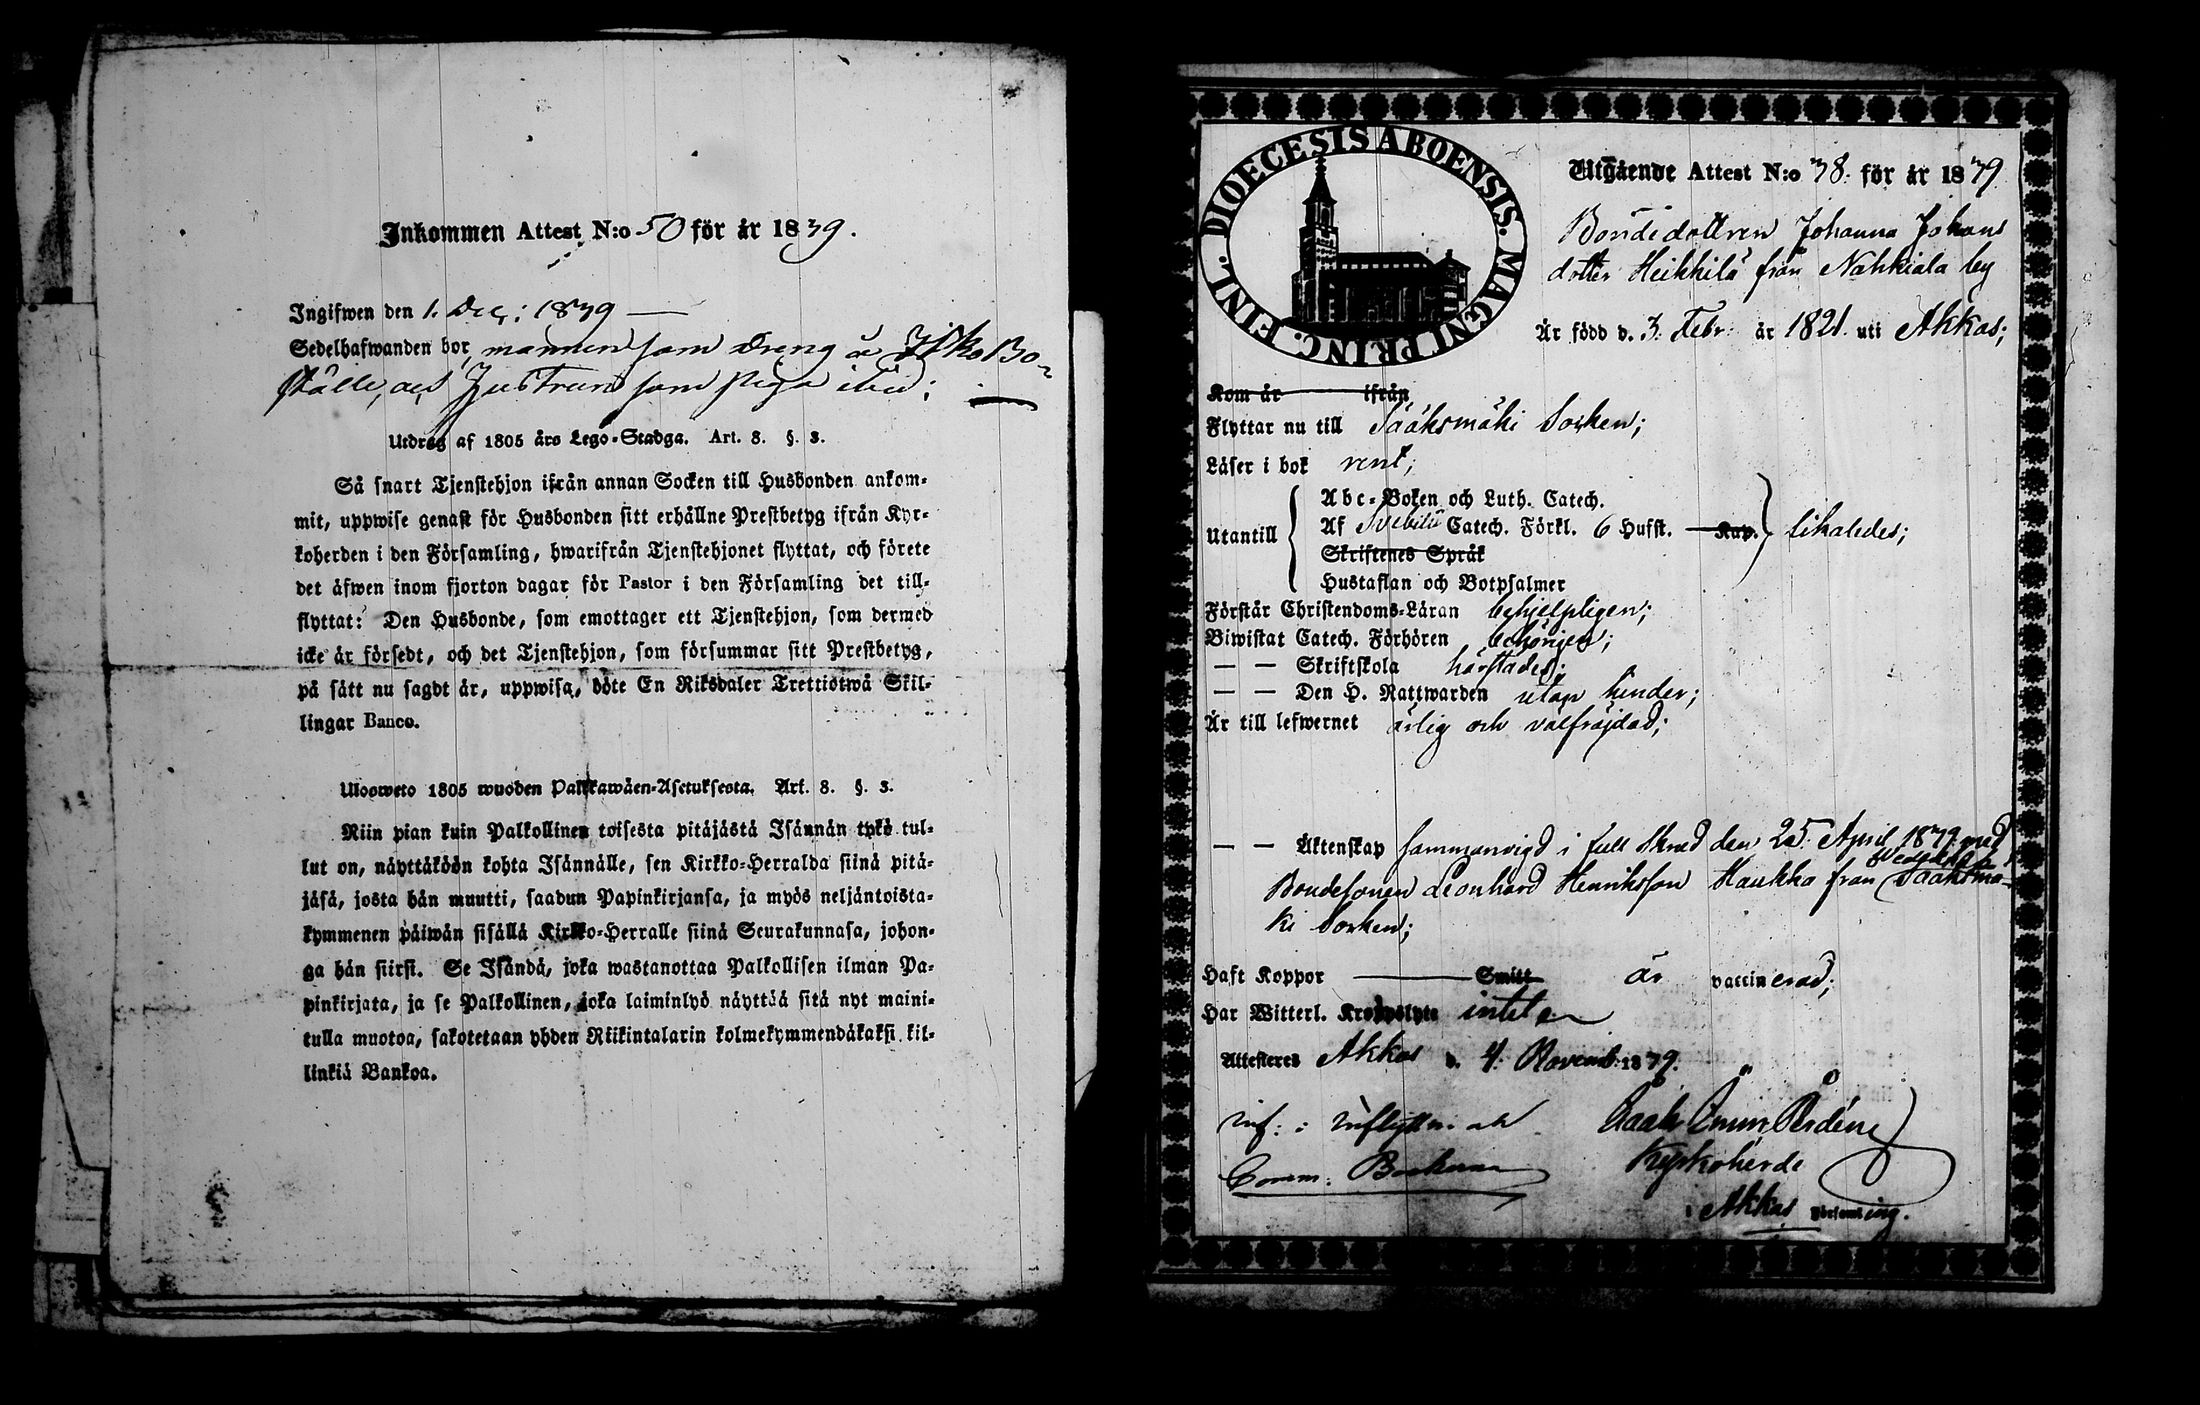 Inkommen Attest N:o 50 för år 1839.
Ingifwen den 1. Dec: 1839
Sedelhafwanden bor mannen som dreng å Bo-
ställe, och hustrun som piga ibid:
Utdrag af 1805 års Lego-Stadga. Art. 8. §. 3.
Så snart Tjenstehjon ifrån annan Socken till Husbonden ankom-
mit, uppwise genast för Husbonden sitt erhållne Prestbetyg ifrån Kyr-
koherden i den Församling, hwarifrån Tjenstehjonet flyttat, och förete
det äfwen inom fjorton dagar för Pastor i den Församling det till-
flyttat: Den Husbonde, som emottager ett Tjenstehjon, som dermed
icke är försedt, och det Tjenstehjon, som försummar sitt Prestbetyg,
på sätt nu sagdt är, uppwisa, böte En Riksdaler Trettiotwå Skil-
lingar Banco.
Uloosweto 1805 wuoden Palkkawäen-Asetuksesta. Art. 8. §. 3.
Niin pian kuin Palkollinen toisesta pitäjästä Isännän tykö tul-
lut on, näyttäköön kohta Isännälle, sen Kirkko-Herralda siinä pitä-
jäsä, josta hän muutti, saadun Papinkirjansa, ja myös neljäntoista-
kymmenen päiwän sisällä Kirkko-Herralle siinä Seurakunnasa, johon-
ga hän siirsi. Se Isändä, joka wastanottaa Palkollisen ilman Pa-
pinkirjata, ja se Palkollinen, joka laiminlyö näyttää sitä nyt maini-
tulla muotoa, sakotetaan yhden Riikintalarin kolmekymmendäkaksi kil-
linkiä Bankoa.
DIOECESIS ABOENSIS. MAGNI PRINC. FINL.
Utgående Attest N:o 38. för år 1839
Bondedottren Johanna Johans
dotter Heikkilä från Nahkiala by
Är född d. 3. Febr. år 1821. uti Akkas;
Kom år ifrån
Flyttar nu till Sääksmäki Socken;
Läser i bok rent;
Utantill
Abc-Boken och Luth. Catech.
Af Svebilii Catech. Förkl. 6 Hufst. Kap. likaledes;
Skriftenes Språk
Hustaflan och Botpsalmer
Förstår Christendoms-Läran behjelpligen;
Biwistat Catech. Förhören behörigen;
— — Skriftskola härstädes;
— — Den H. Nattwarden utan hinder;
Är till lefwernet ärlig och välfräjdad;
— — Äktenskap sammanvigd i full den 25. April 1839 med
Bondesonen Leonhard Henriksson Haukka från Sääksmä-
ki Socken;
Haft Koppor Smitt är vaccinerad;
Har Witterl. intet
Attesteras Akkas d. 4. Novemb: 1839.
Kyrkoherde
i Akkas Församling.
Comm: